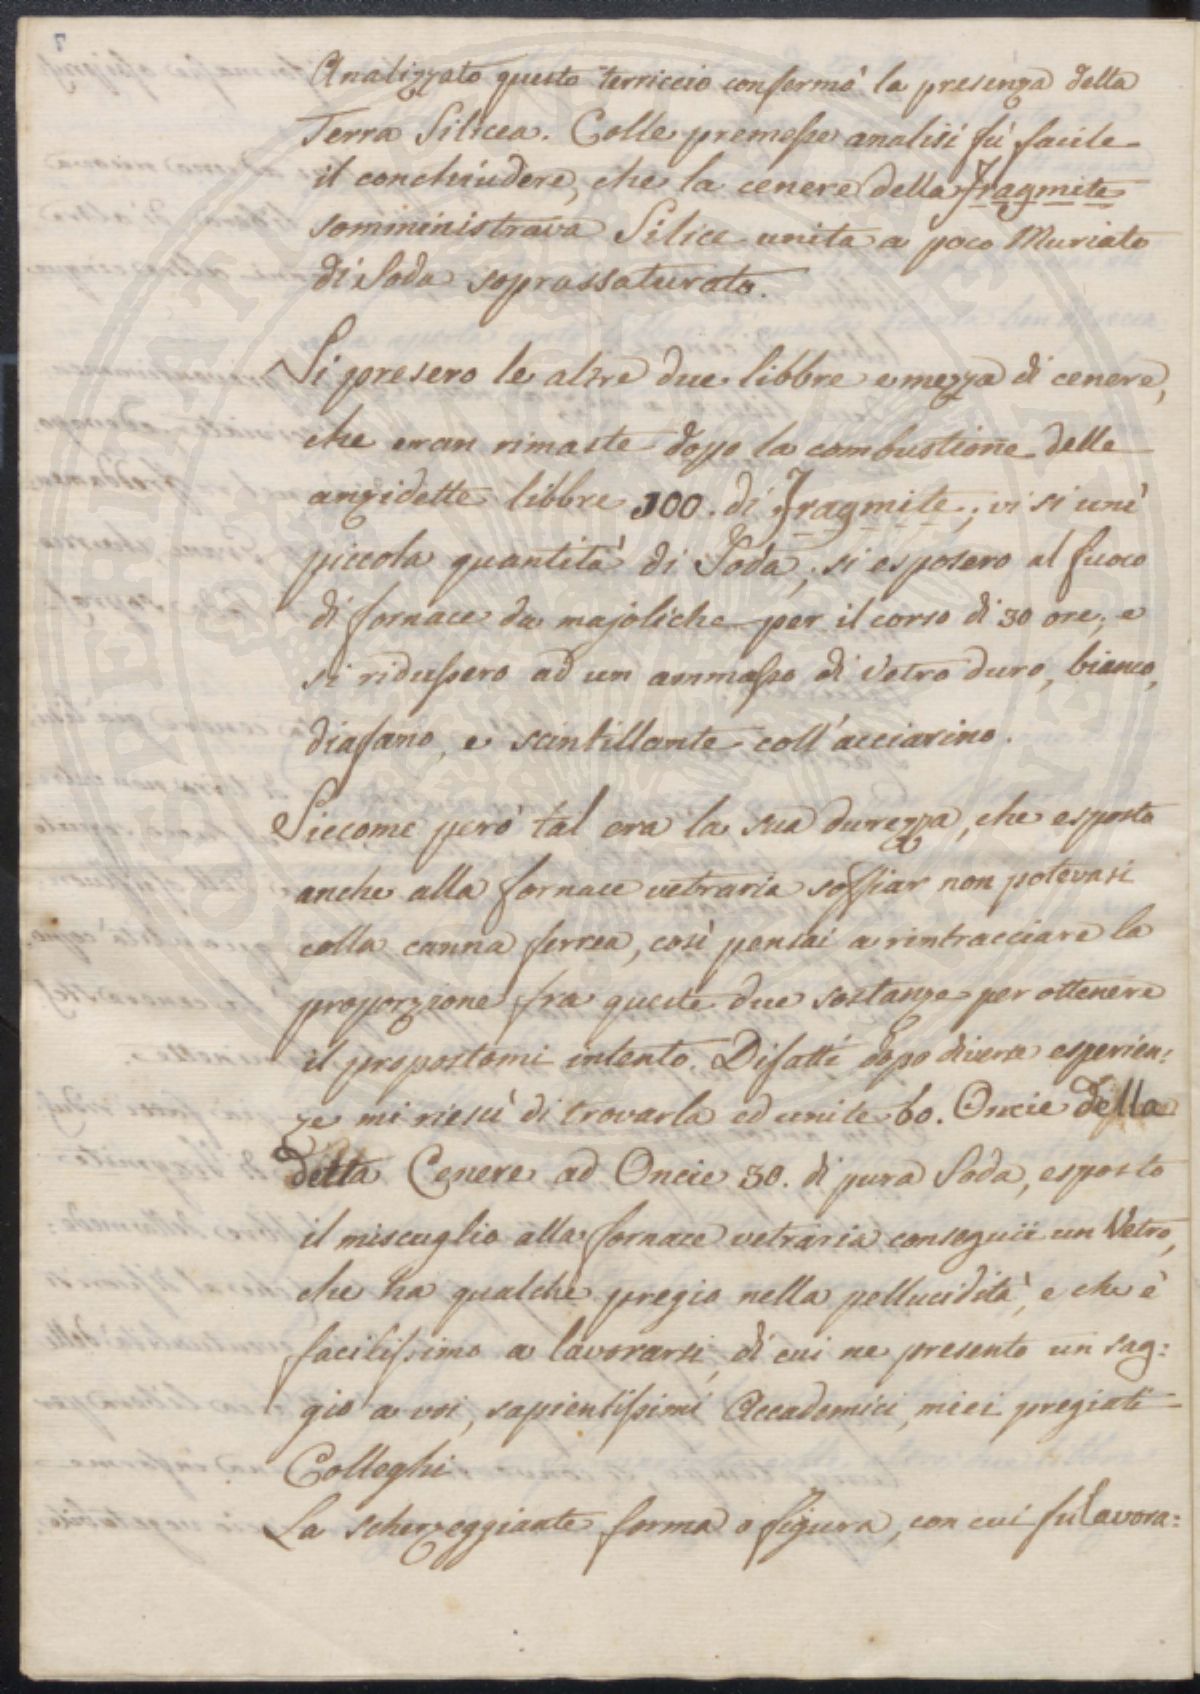 Analizzato questo terriccio confermò la presenza della
Terra Silicea. Colle premesse analisi fù facile
il conchiudere, che la cenere della Fragmite
somministrava Silice unita a poco Muriato
di Soda soprassaturato.
Si presero le altre due libbre e mezza di cenere,
che eran rimaste dopo la combustione delle
anzidette libbre 100. di Fragmite; vi si unì
piccola quantità di Soda; si esposero al fuoco
di fornace da majoliche per il corso di 30 ore; e
si ridussero ad un ammasso di Vetro duro, bianco,
diafano, e scintillante coll'acciarino.
Siccome però tal era la sua durezza, che esposto
anche alla fornace vetraria soffiar non potevasi
colla canna ferrea, così pensai a rintracciare la
proporzione fra queste due sostanze per ottenere
il propostomi intento. Difatti dopo diverse esperien:
ze mi riescì di trovarla ed unite 60. Oncie della
detta Cenere ad Oncie 30. di pura Soda, esposto
il miscuglio alla fornace vetraria conseguii un Vetro,
che ha qualche pregio nella pellucidità, e che è
facilissimo a lavorarsi, di cui ne presento un sag:
gio a voi, sapientissimi Accademici, miei pregiati
Colleghi
La scherzeggiante forma o figura, con cui fu lavora: